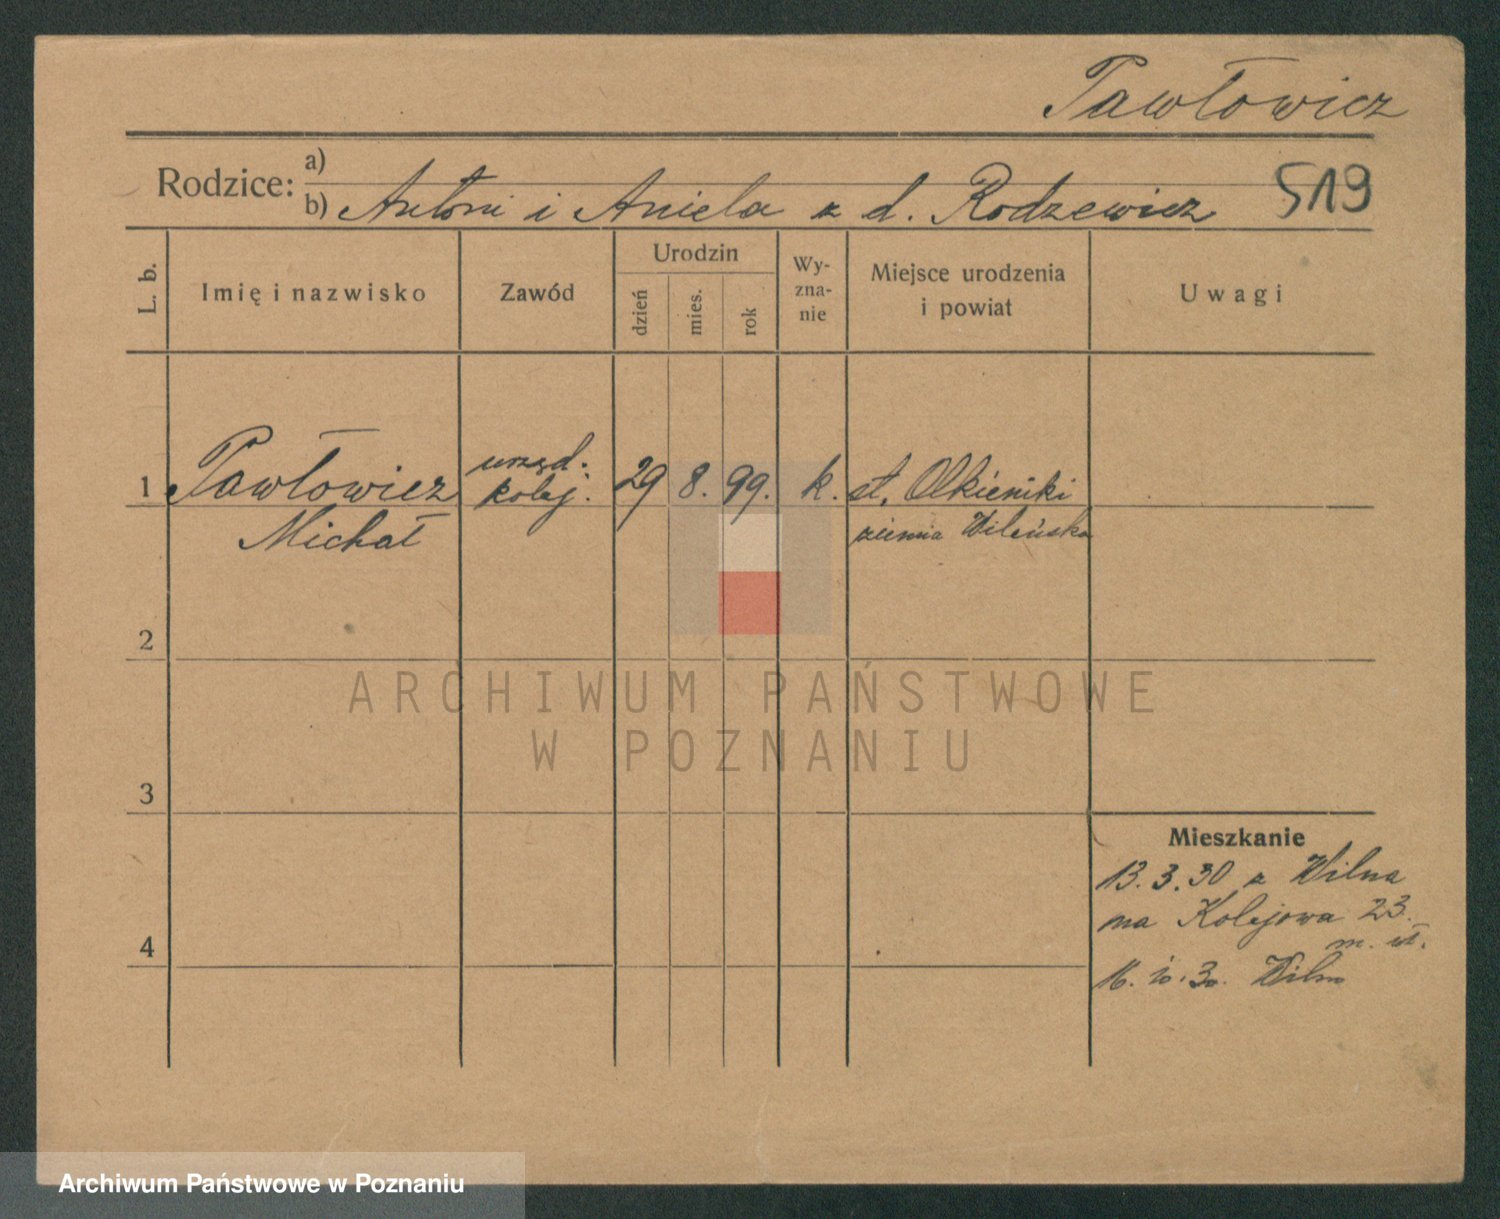 Pawłowicz
Rodzice:
a)
b) Antoni i Aniela z d. Rodzewicz
519
L. b.
Imię i nazwisko
Zawód
Urodzin
dzień
mies.
rok
Wy-
zna-
nie
Miejsce urodzenia
i powiat
Uwagi
1
Pawłowicz
Michał
urzęd.
kolej.
29
8.
99.
k.
st. Olkieniki
ziemia Wileńska
2
3
4
Mieszkanie
13.3.30 z Wilna
na Kolejowa 23.
m. wł.
16.10.30. Wilno
ARCHIWUM PAŃSTWOWE
W POZNANIU
Archiwum Państwowe w Poznaniu